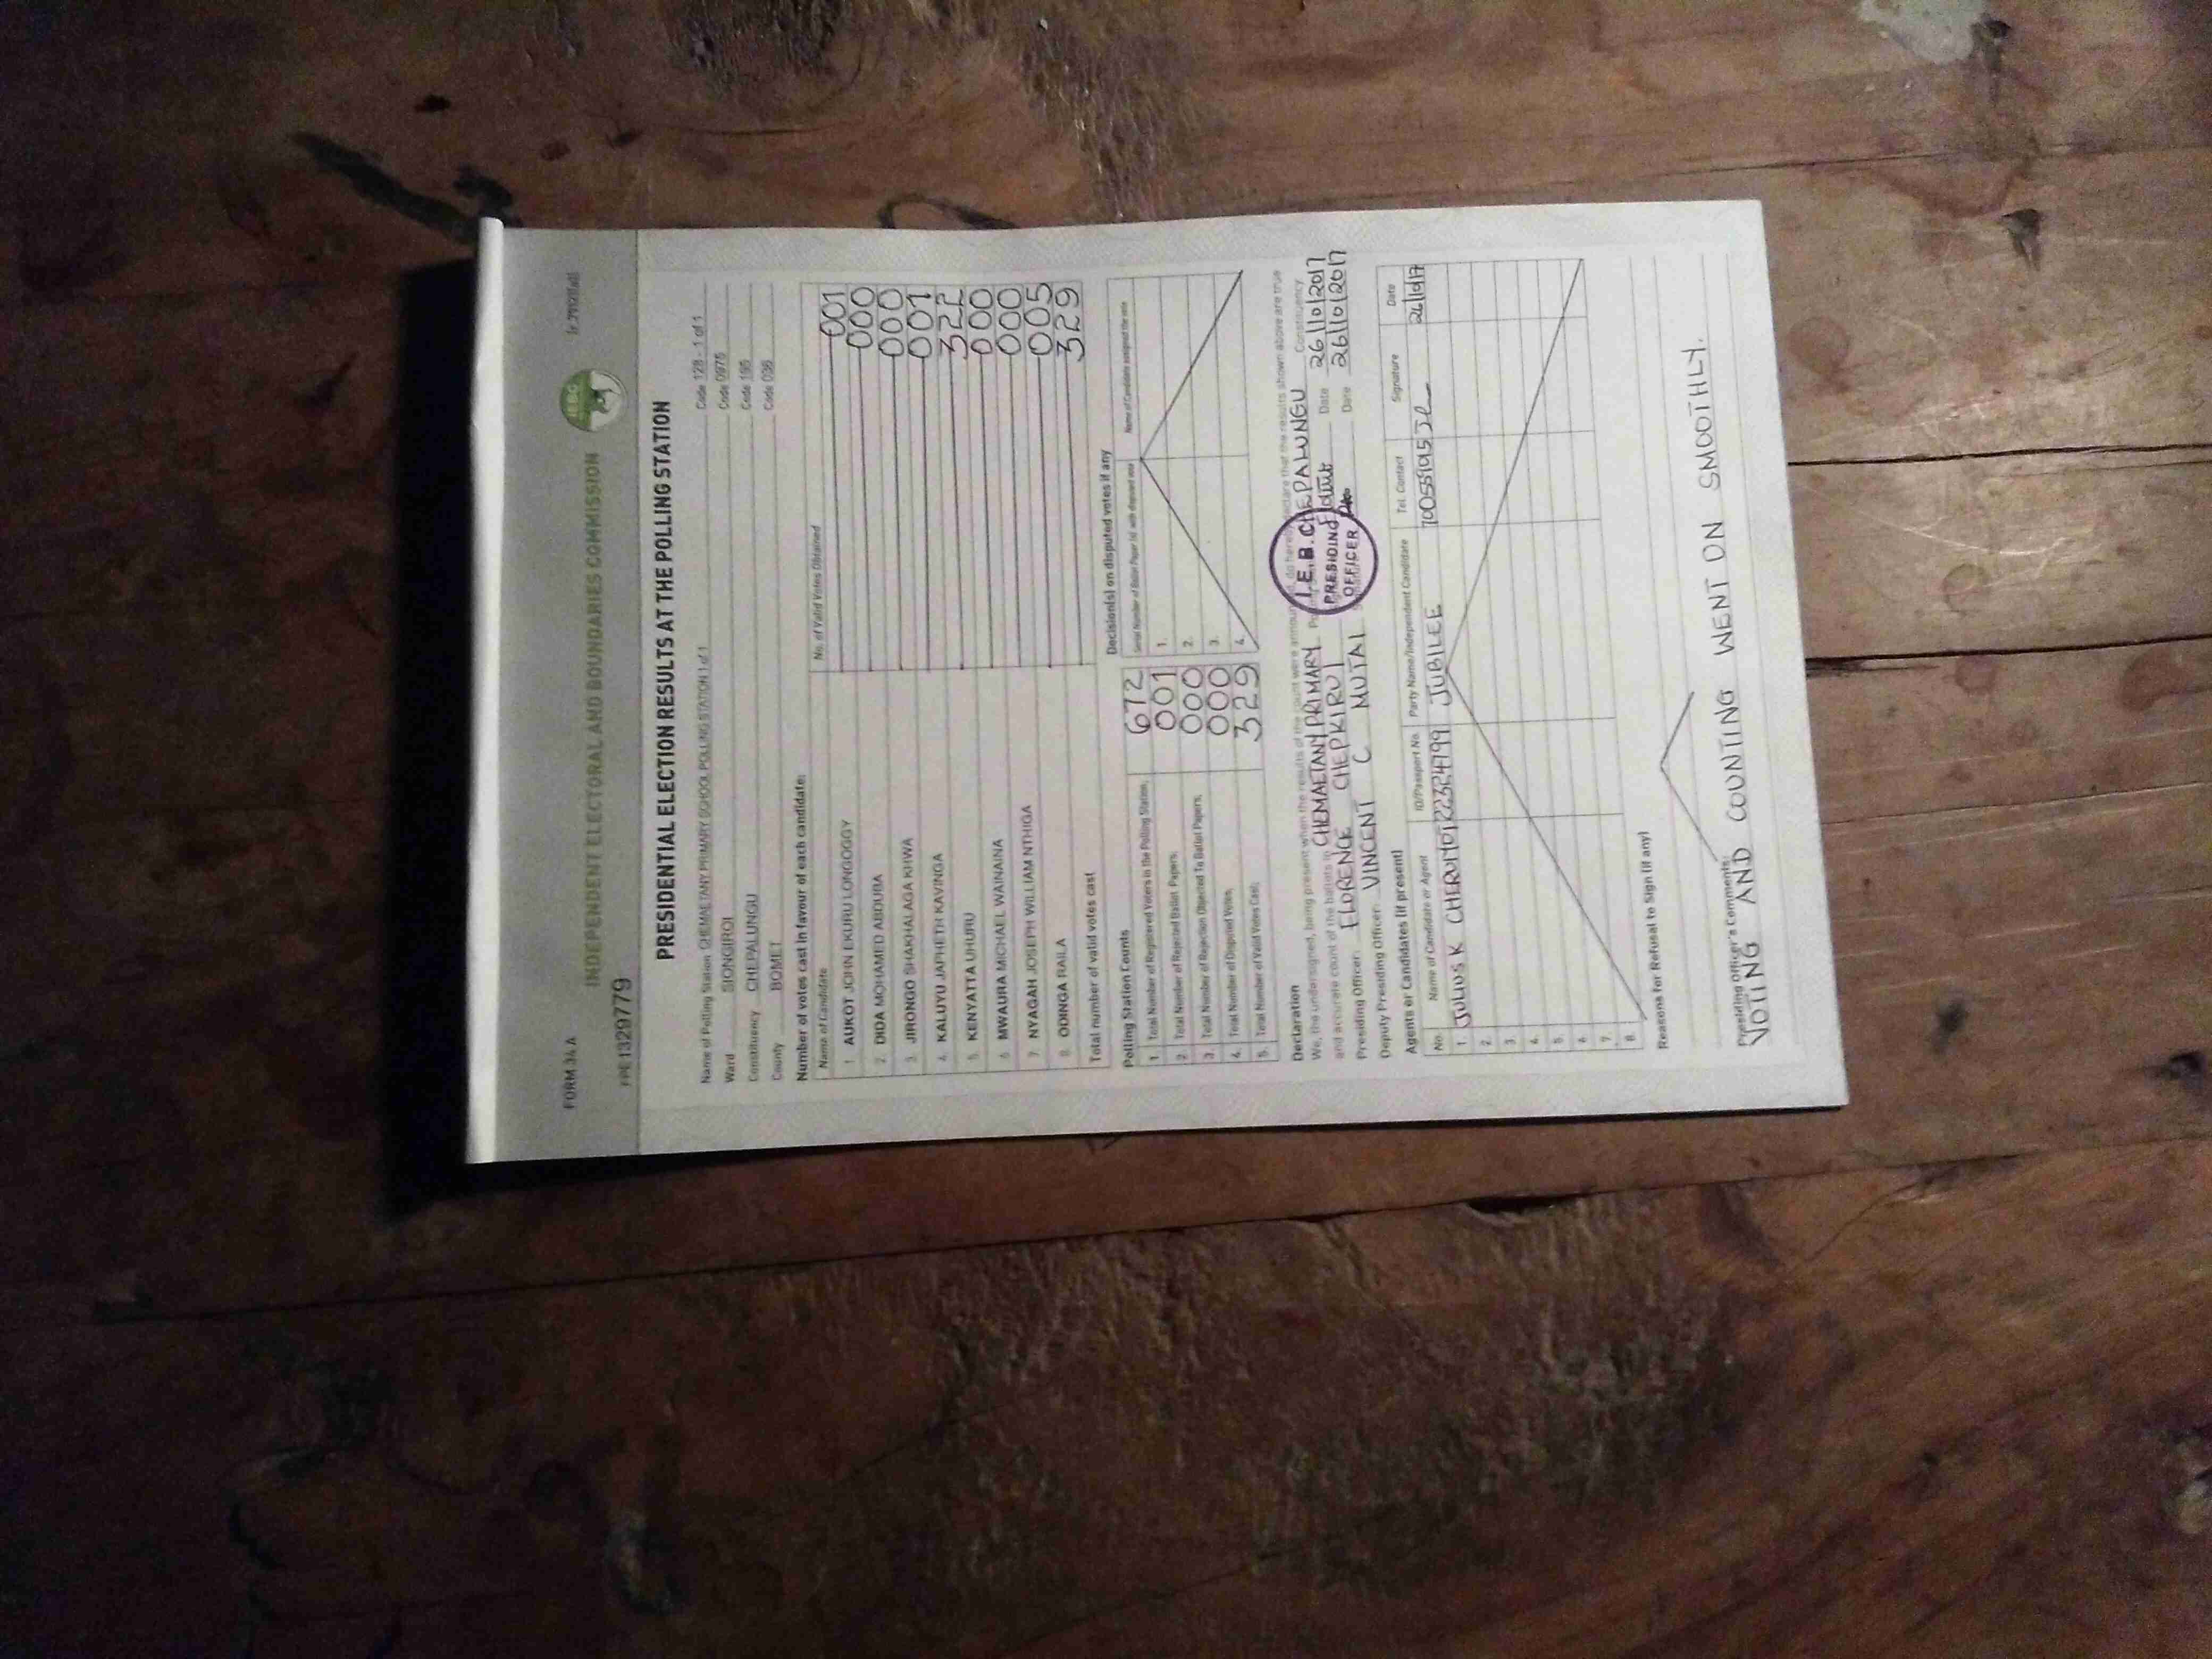 FORM 34 A
INDEPENDENT ELECTORAL AND BOUNDARIES COMMISSION
IEBC
FPE 1329779
PRESIDENTIAL ELECTION RESULTS AT THE POLLING STATION
Name of Polling Station CHEMAETANY PRIMARY SCHOOL POLLING STATION 1 of 1 Code 128 - 1 of 1
Ward SIONGIROI Code 0975
Constituency CHEPALUNGU Code 195
County BOMET Code 036
Number of votes cast in favour of each candidate:
Name of Candidate No. of Valid Votes Obtained
1 AUKOT JOHN EKURU LONGOGGY 001
2. DIDA MOHAMED ABDUBA 000
3. JIRONGO SHAKHALAGA KHWA 000
4. KALUYU JAPHETH KAVINGA 001
5. KENYATTA UHURU 322
6 MWAURA MICHAEL WAINAINA 000
7. NYAGAH JOSEPH WILLIAM NTHIGA 000
8. ODINGA RAILA 005
Total number of valid votes cast 329
Polling Station Counts
1. Total Number of Registered Voters in the Polling Station; 672
2. Total Number of Rejected Ballot Papers; 001
3. Total Number of Rejection Objected To Ballot Papers; 000
4. Total Number of Disputed Votes; 000
5. Total Number of Valid Votes Cast; 329
Decision(s) on disputed votes if any
Serial Number of Ballot Paper (s) with disputed vote Name of Candidate assigned the vote
1.
2.
3.
4.
Declaration
We, the undersigned, being present when the results of the count were announced, do hereby declare that the results shown above are true
and accurate count of the ballots in CHEMAETANY PRIMARY CHEPALUNGU Constituency
Presiding Officer: FLORENCE CHEPKIRUI Date 26/10/2017
Deputy Presiding Officer: VINCENT C MUTAI Date 26/10/2017
I.E.B.C
PRESIDING
OFFICER
Agents or Candidates (if present)
No. Name of Candidate or Agent ID/Passport No. Party Name/Independent Candidate Tel. Contact Signature Date
1. JULIUS K CHERUIYOT 22324799 JUBILEE 26/10/17
2.
3.
4.
5.
6
7.
8.
Reasons for Refusal to Sign (if any)
Presiding Officer's Comments:
VOTING AND COUNTING WENT ON SMOOTHLY.